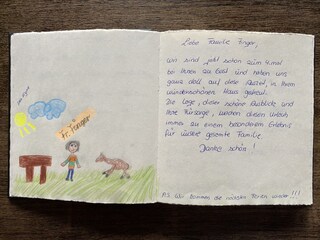 Fr. Yünger
Liebe Familie Enger,
wir sind jetzt schon zum
bei Ihnen zu Gast und
ganz doll auf diese Auszeit, in Ihrem
wunderschönen Haus gefreut.
Die Lage, dieser schöne Ausblick und
Ihre Fürsorge, machen diesen Urlaub
immer zu einem besonderen Erlebnis
für unsere gesamte Familie.
Danke schön!
P.S. Wir kommen die nächsten Ferien wieder!!!